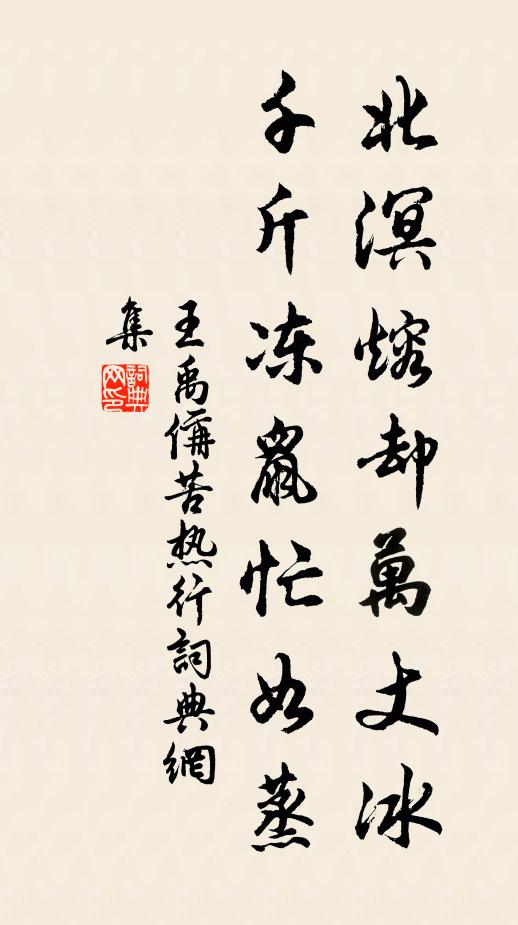 北溟熔却萬丈冰
千斤冻鼠忙如蒸
王禹偁苦热行詞典網
集
詞典网印